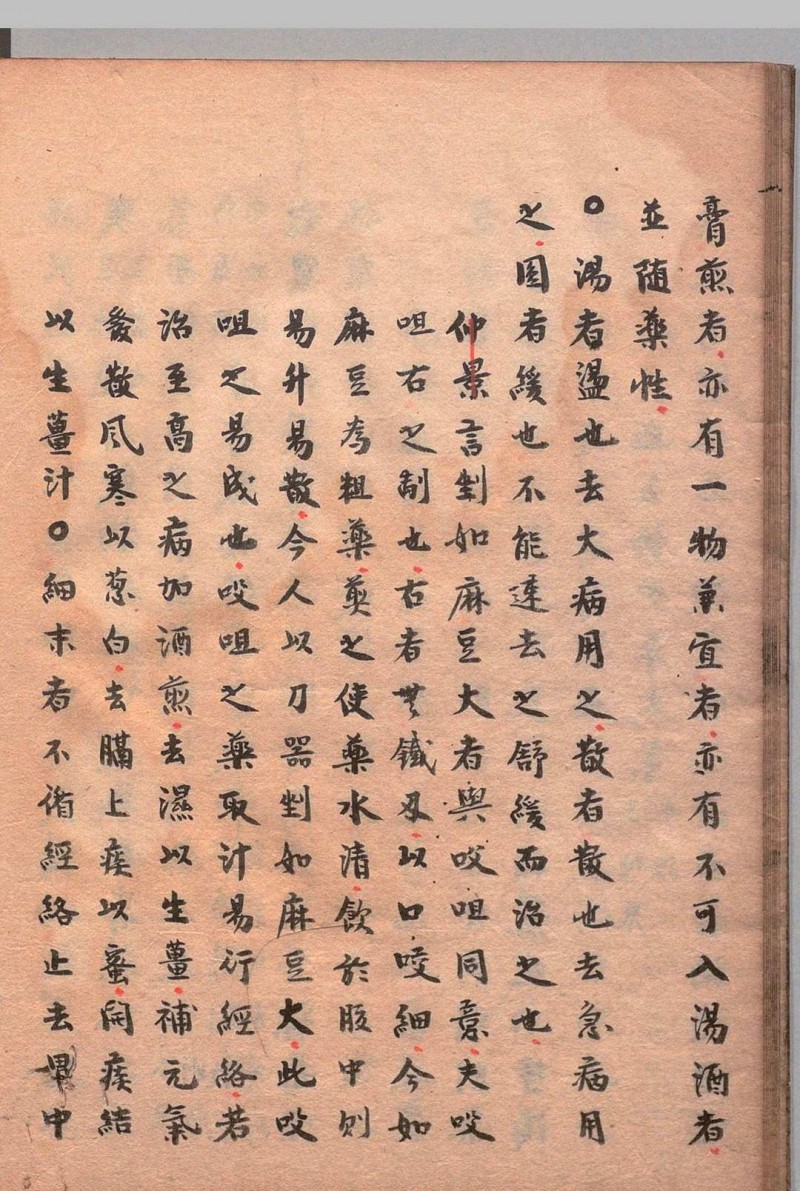 膏煎者亦有一物兼宜者亦有不可入湯酒者
並随藥性
○湯者盪也去大病用之散者散也去急病用
之圓者緩也不能速去之舒緩而治之也
仲景言剉如麻豆大者與㕮咀同意夫㕮
咀古之制也古者無鐵刃以口咬細今如
麻豆為粗藥煎之使藥水清飲於腹中則
易升易散今人以刀器剉如麻豆大此㕮
咀之易成也㕮咀之藥取汁易行經絡若
治至高之病加酒煎去濕以生薑補元氣
發散風寒以葱白去膈上痰以蜜開痰結
以生薑汁○細末者不循經絡止去胃中